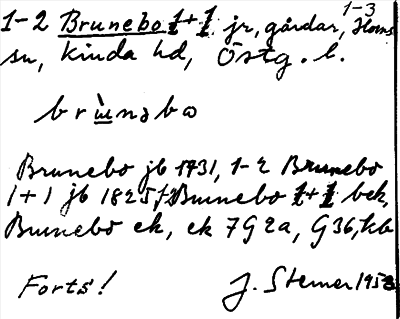 1-2 Brunebo 1+1 jr, gårdar, 1-3 Horns
sn, Kinda hd, Östg. l.
brùnəbω
Brunebo jb 1731, 1-2 Brunebo
1+1 jb 1825 ff, Brunebo 1+1 bek,
Brunebo ek, ek 7G2a, G36, kb
Forts! J. Stemer 1958